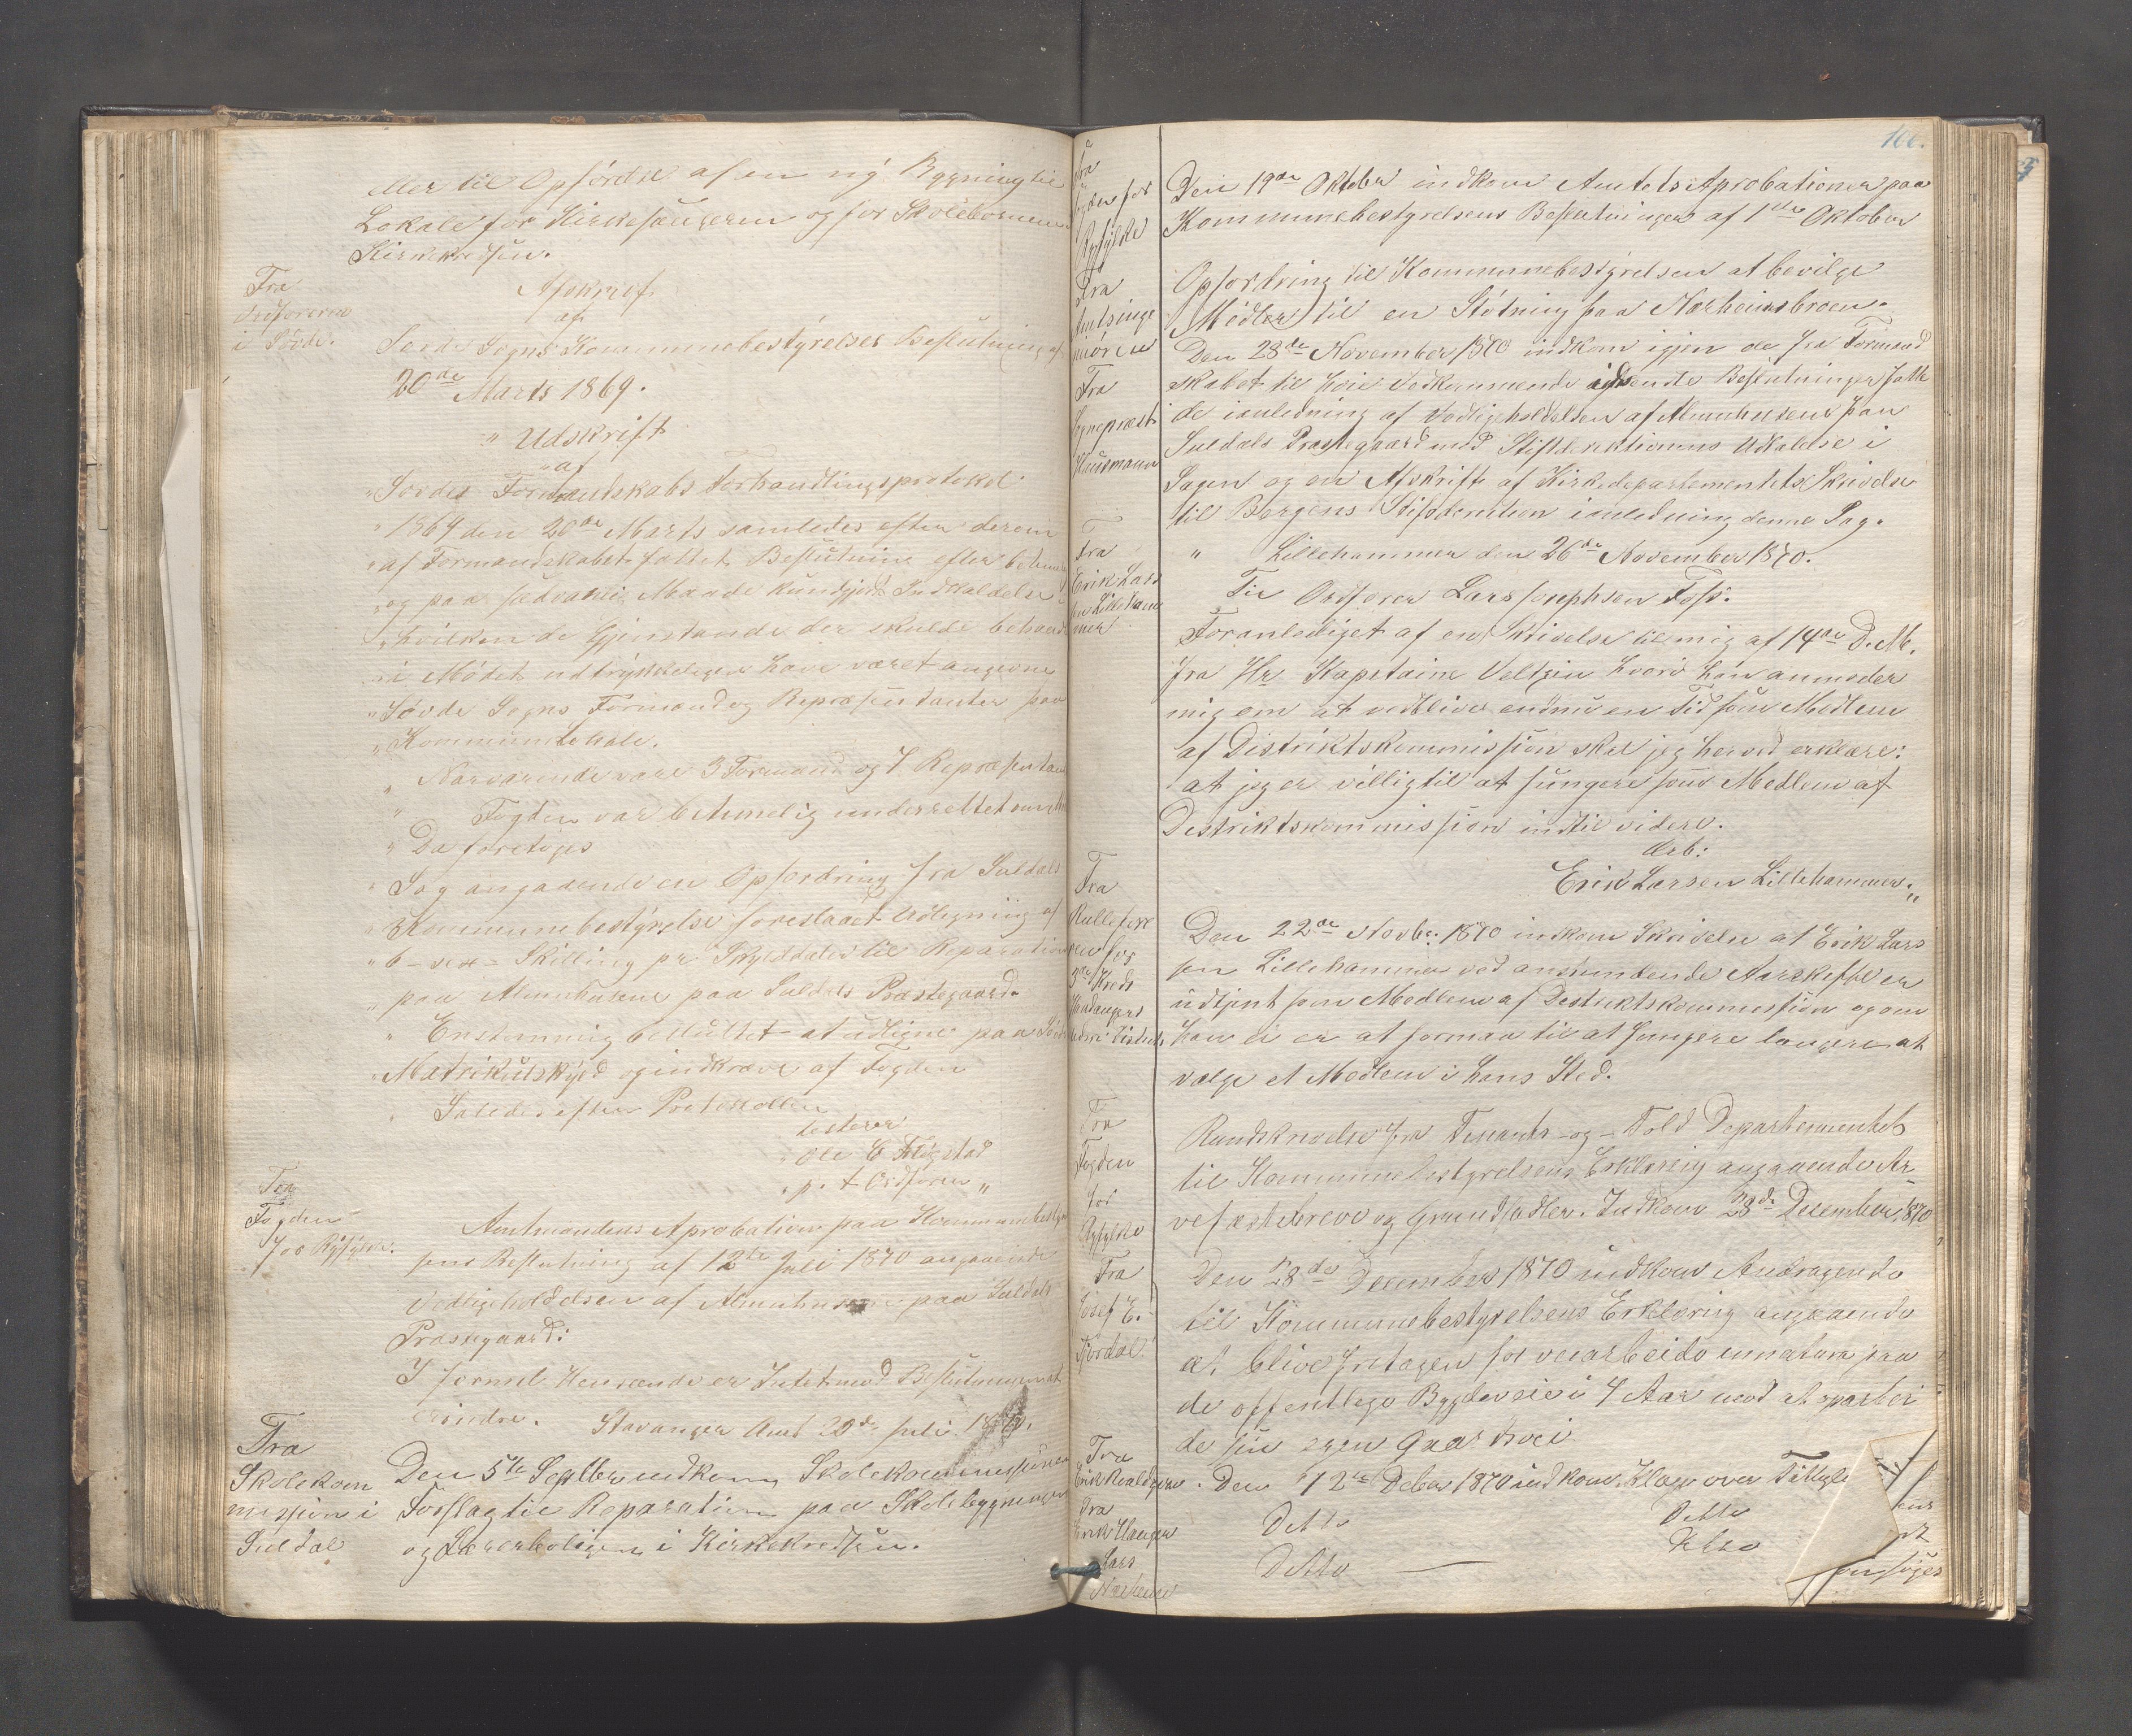 eller til Opførelse af en ny Bygning til
Lokale for Kirkesangeren og for Skolebørnene i
Kirkekredsen.
Fra
Ordføreren
i Søvde.
Afskrift
af
Søvde Sogns Kommunebestyrelses Beslutning af
20de Marts 1869.
" Udskrift
" af
" Sovdes Formandskabs Forhandlingsprotokol
" 1869 den 20de Marts samledes efter derom
" af Formandskabet fattet Beslutning efter betimelig
" og paa sædvanlig Maade kundgjort Indkaldelse
" hvilken de Gjenstande der skulde behandles
" i Mødet udtrykkeligen have været angivne
" Søvde Sogns Formænd og Repræsentanter paa
" Kommunelokale.
" Nærværende vare 3 Formænd og 7 Repræsentanter
" Fogden var betimelig underrettet om
" Da foretoges
" Sag angaaende en Opfordring fra Suldals
" Kommunebestyrelse foreslaaet Udligning af
" 6 - sex - Skilling pr Skylddaler til Reparation
" paa Almuhusene paa Suldals Præstegaard.
" Enstemmig besluttet at udligne paa Søvde
" Matrikulskyld og indkræve af Fogden
" Saledes efter Protokollen
testerer
" Ole E Fligstad
" p. t Ordfører "
Fra
Fogden
for Ryfylke.
Amtmandens Aprobation paa Kommunebestyrel
sens Beslutning af 12te Juli 1870 angaaende
Vedligeholdelsen af Almuhusene paa Suldals
Præstegaard:
I formel Henseende er Intet mod Beslutningen at
erindre. Stavanger Amt 20de Juli 1870.
Fra
Skolekom
mission i
Suldal
Den 5te Septbr indkom Skolekommissionens
Forslag til Reparation paa Skolebygningen
og Lærerboligen i Kirkekredsen.
106.
Fra
Fogden for
Ryfylke
Den 19de Oktober indkom Amtets Aprobationer paa
Kommunebestyrelsens Beslutninger af 1ste Oktober
Fra
Amtsinge
niøren
Opfordring til Kommunebestyrelsen at bevilge
Midler til en Støtning paa Nærheimsbroen.
Fra
Sognepræst
Hausmann
Den 28de November 1870 indkom igjen de fra Formand
skabet til høie Vedkommende indsendte Beslutninger fatte
de i anledning af Vedligeholdelsen af Almuhusene paa
Suldals Præstegaard med Stiftdirektionens Udtalelse i
Sagen og en Afskrift af Kirkedepartementets Skrivelse
til Bergens Stiftdirektion i anledning denne Sag.
Fra
Erik Lars
sen Lilleham
mer
" Lillehammer den 26de November 1870.
Til Ordfører Lars Josephsen Foss.
Foranlediget af en Skrivelse til mig af 14de D. M.
fra Hr Kapetaine Veltzin hvori han anmoder
mig om at vedblive endnu en Tid som Medlem
af Distriktskommission skal jeg herved erklære:
at jeg er villig til at fungere som Medlem af
Destriktskommission indtil videre.
Ærb:
Erik Larsen Lillehammer. "
Fra
Rullefør
eren for
3de Kreds
Hardangers
Den 22de Novbr. 1870 indkom Skrivelse at Erik Lars
sen Lillehammer ved anstundende Aarskifte er
udtjent som Medlem af Destriktskommission og om
han ei er at formaa til at fungere længere at
vælge et Medlem i hans Sted.
Fra
Fogden
for
Ryfylke
Rundskrivelse fra Finants- og - Told Departementet
til Kommunebestyrelsens Erklæring angaaende Ar
vefæstebreve og Grundsedler. Indkom 28de December 1870
Fra
Josef E.
Fjordal
Den 28de December 1870 indkom Andragende
til Kommunebestyrelsens Erklæring angaaende
at blive fritagen for veiarbeide innatura paa
de offentlige Bygdeveie i 7 Aar mod at oparbei
de sin egen Gaardsvei
Fra
Erik Roaldqvam
. Den 12te Debr 1870 indkom Klage over
Fra
Erik Haugen
Detto Detto
Lars
Nærheim
Detto — Detto